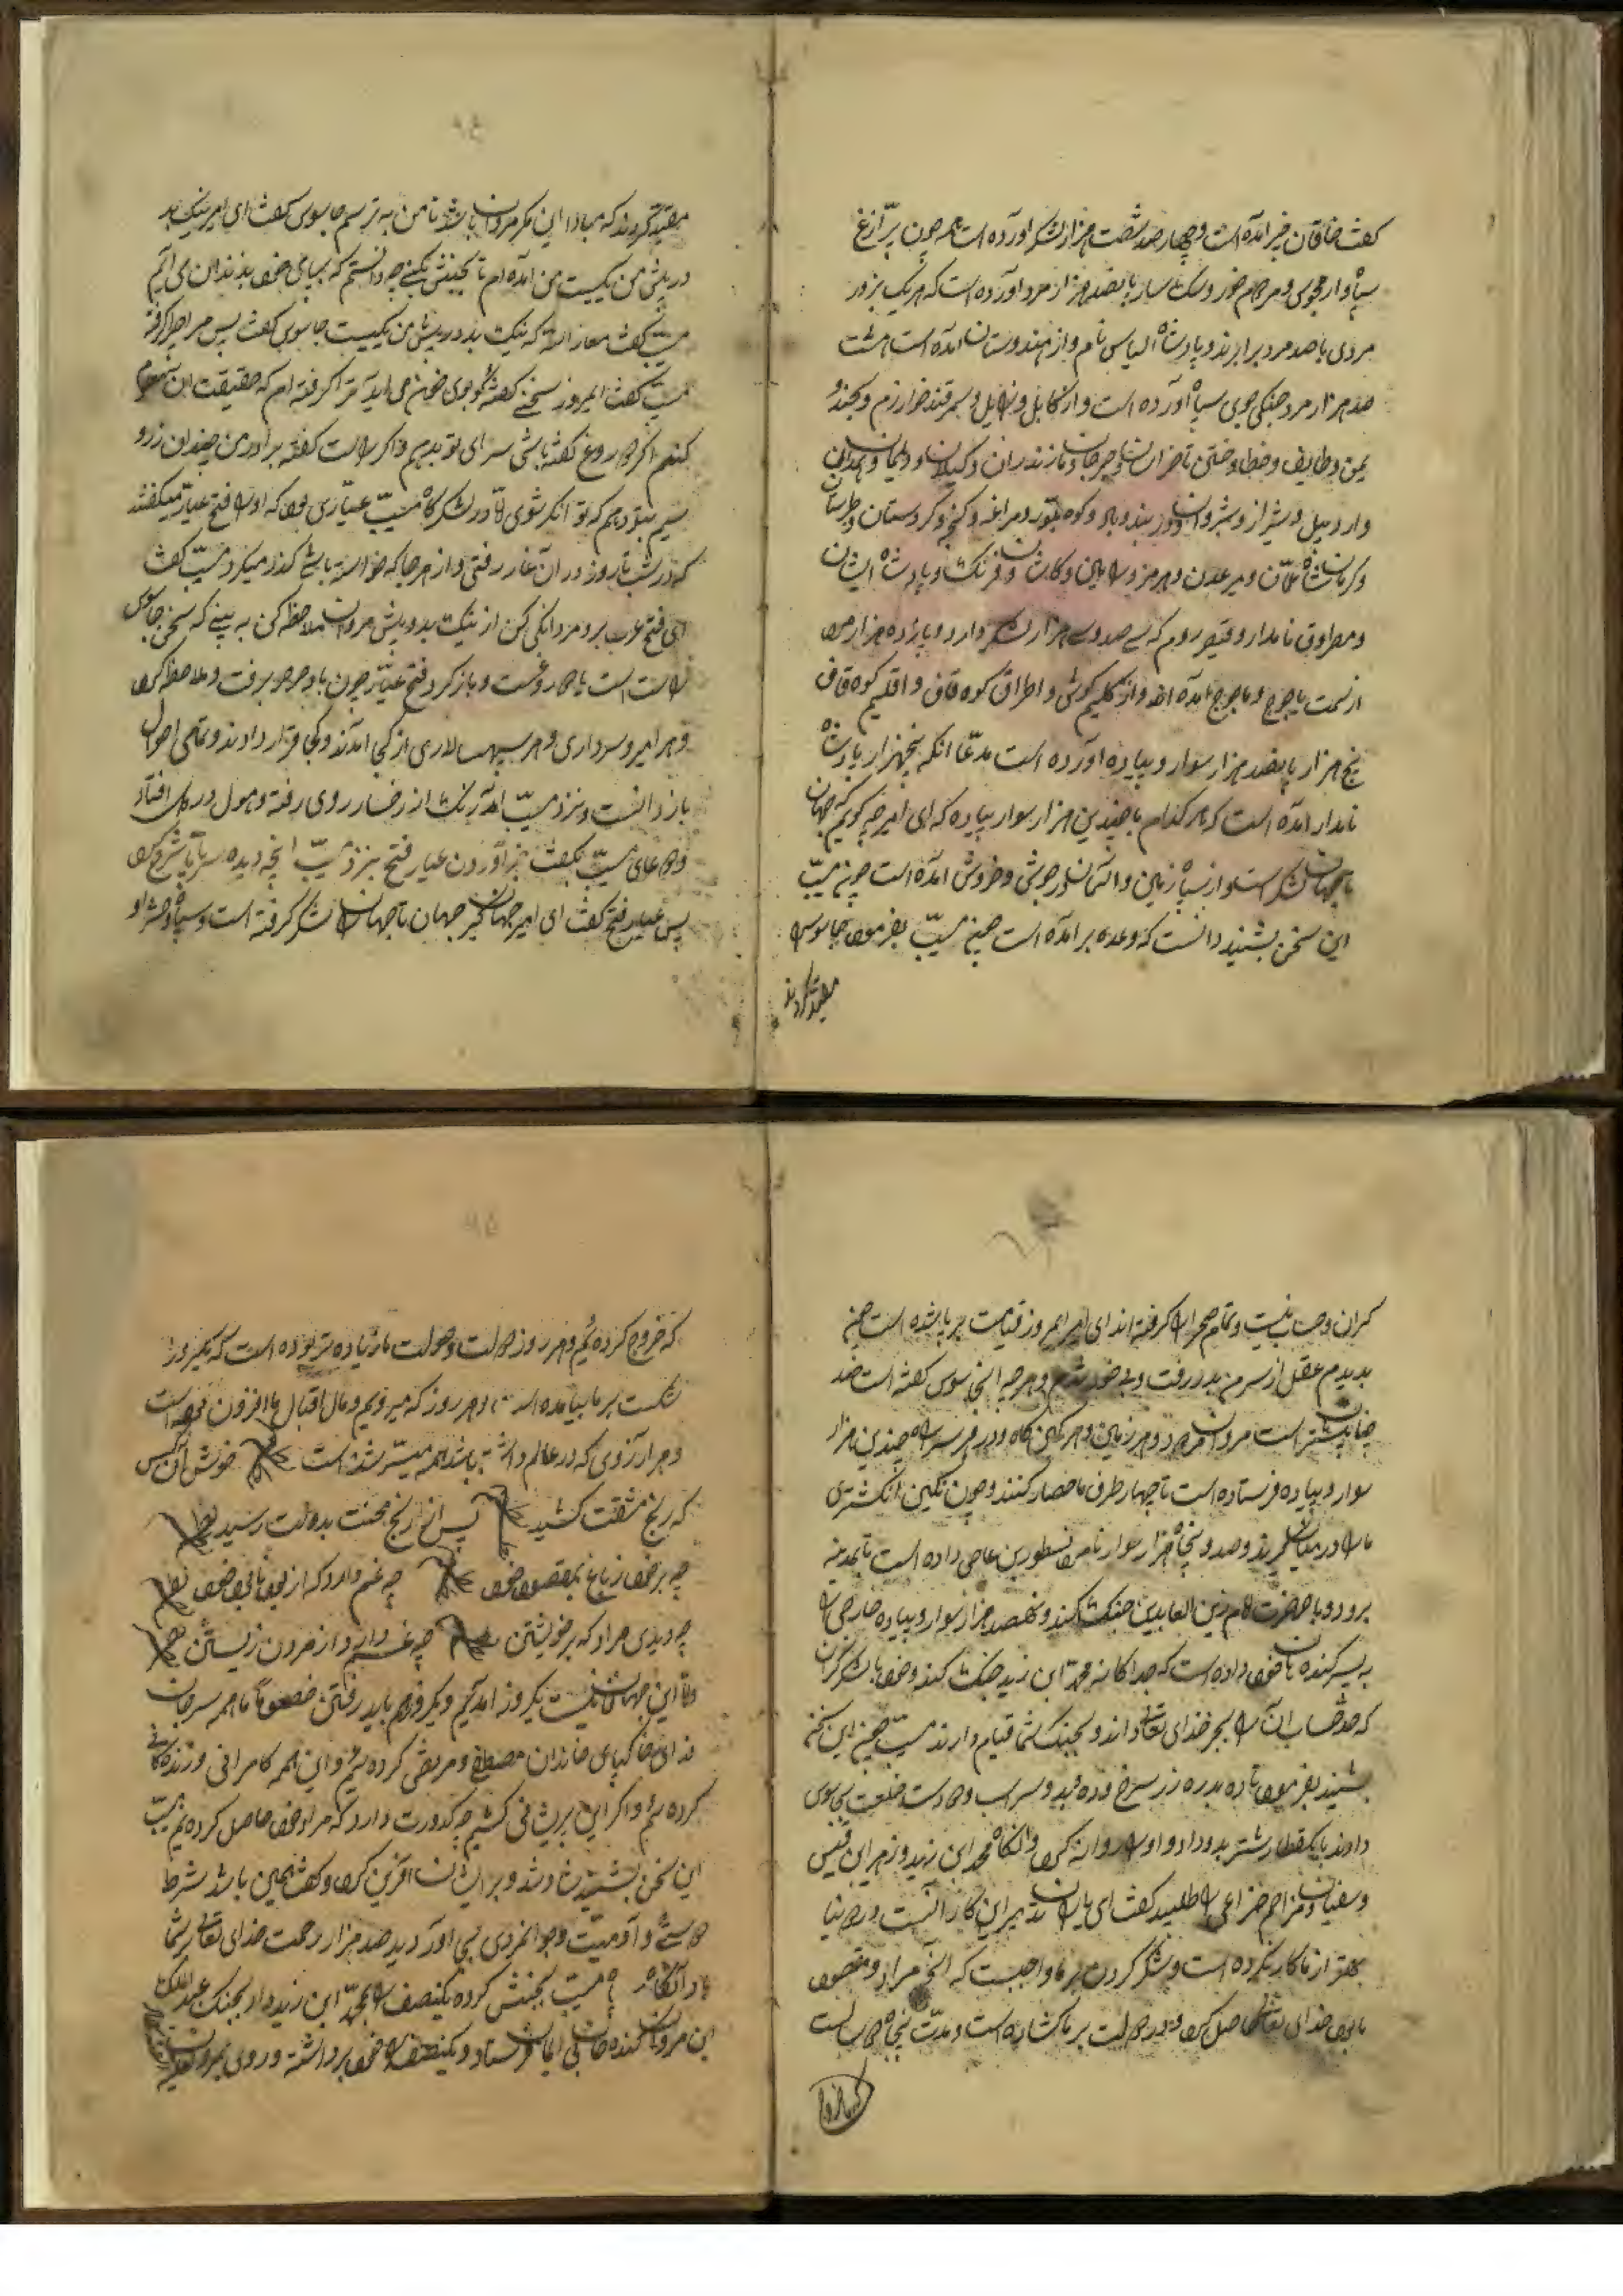 کفت خاقان خبر آمده است و چهار صد شصت هزار لشکر آورده است همه چون پر آزغ
سپاه وار مجوسی و مردم خور و سک سار پانصد هزار مرد آورده است که هر یک بزور
مردی با صد مرد برابرند و پادشاه الیاس نام و از هندوستان آمده است هشت
صد هزار مرد جنکی جوی سپاه آورده است و از کابل و زابل و سمرقند خوارزم و خجند و
یمن و طایف و خطا و ختن تا خراسان و جرجان و مازندران و کیلان و دیلمان و همدان
و اردبیل و شیراز و شیروان و دربند و باد کوه و مراغه و کنجه و کردستان و طبرستان
و کرمان شاه عمان و میر عدن و هرمز و فرنک و پادشاه ایشان
و مطراوق نامدار و قیصر روم که سی صد و سی هزار لشکر دارد و پانزده هزار مرد
از سمت یاجوج و ماجوج آمده اند و از کلیم کوش و اطراق کوه قاف و اقلیم کوه قاف
پنج هزار پانصد هزار سوار و پیاده آورده است مدعا آنکه پنجهزار پادشاه
نامدار آمده است که هر کدام با چندین هزار سوار پیاده که ای امیر چه کویم که جهان
تا جهان لشکر است و از سپاه زمین و آسمان در جوش و خروش آمده است چون مسیّب
این سخن بشنید دانست که وعده برآمده است چنین مسیّب بفرمود جاسوس را
مقید کردند
مقید کردند که مبادا این مکر مروان باشد تا من به ترسم جاسوس کفت ای امیر نیک بد
در پیش من یکیست من آمده ام تا بخشش بکنی چه دانستم که بپای خود بزندان می آیم
مسیّب کفت معاذ الله که نیک بد در پیش من یکیست جاسوس کفت پس مرا چرا کرفته
مسیّب کفت امروز سخنی کفته کو بوی خون می آید ترا کرفته ام که حقیقت این معلوم
کنم اکر دروغ کفته باشی سزای تو بدهم و اکر راست کفته برادر من چندان زر و
سیم بتو دهم که توانکر شوی امّا در لشکرکاه مسیّب عیّاری بود که او را فتح عیّار میکفتند
که در شب تا روز در آن غار رفتی و از هر جا که خواسته باشی کذر میکرد مسیّب کفت
ای فتح عرب برو مردانکی کن از نیک بد و پیش مروان ملاحظه کن به بینی که سخن جاسوس
راست است یا دروغست و باز کرد فتح عیّار چون باد صرصر برفت و ملاحظه کرد
و هر امیر و سرداری و هر سپهسالاری از کجا آمدند و کجا قرار دادند و تمامی احوال
باز دانست و نزد مسیّب آمد رنک از رخسار روی رفته و هول در دل افتاد
و دعای مسیّب بکفت بر آوردن عیار فتح بنزد مسیّب آنچه دیده سر تا پا شرح کرد
پس عیار فتح کفت ای امیر جهان کیر جهان تا جهان لشکر کرفته است و سپاه و حشر او
کران و حساب نیست و تمام صحرا را کرفته اند ای امیر امروز قیامت برپا شده است چنین
بدیدم عقل از سر من بدر رفت و بی خود شدم و هر چه آن جاسوس کفته است صد
چنان بیشتر است مروان در هر زمین و هر کمین کاه و در هر سر راه چندین هزار
سوار و پیاده فرستاده است تا چهار طرف ما حصار کنند و چون نکین انکشتری
ما را در میان کیرند و صد و پنجاه هزار سوار نامرد نسطور بن عاصی داده است تا بمدینه
برود و با حضرت امام زین العابدین جنک کند و نهصد هزار سوار و پیاده خارجی را
به پسر کنده خود داده است که جداکانه محمد ابن زید جنک کند و خود با لشکر کران
که حد حساب آن را بجز خدای تعالی نداند و بجنک شما قیام دارند مسیّب چون این سخن
بشنید بفرمود تا ده بدره زر سرخ و ده عبد و سر اسب و ده دست خلعت بجاسوس
دادند با یکقطار شتر بدو داد و او را روانه کرد و آنکاه محمد ابن زید و زهیر ابن قیس
و سفیان و مزاحم خزاعی را طلبید کفت ای یاران تدبیر این کار آنست و در دنیا
بهتر از ما کار نکرده است و شکر کردن بر ما واجبست که آنچه مراد و مقصود
ما بود خدای تعالی حاصل کرد و در دولت بر ما کشاده است و مدّت پنجاه سالست
که خروج کرده ایم و هر روز دولت و صولت ما زیاده تر بوده است که یکروز
شکست بر ما نیامده است و هر روز که میرویم و مال اقبال ما افزون بوده است
و هر آرزوی که در عالم داشته باشند همه میسّر شده است خوش آن کس
که رنج مشقت کشید پس از رنج محنت بدولت رسید
چه برخورد ز باغ مقصود خود چه غم دارد که از بود نابود خود
چه دیدی مراد که بر خویشتن چه غم داری از مردن زیستن
امّا این جهان فانیست یکروز آمدیم و یکروز هم باید رفتن خصوصاً ما همه سر جان
فدای خاکپای خاندان مصطفی و مرتضی کرده ایم و این همه کامرانی و زندکانی
کرده ایم و اکر این پریشانی کشیم چه کدورت دارد که مراد خود حاصل کرده ایم مسیّب
این سخن بشنید شاد شد و بر ایشان آفرین کرد و کفت همین باشد شرط
دوستی و آدمیت و جوانمردی بجا آوردید صد هزار رحمت خدای تعالی بر شما
باد آنکاه مسیّب بخشش کرده یکنصف را به محمّد ابن زید داد بجنک عبد الملک
ابن مروان کنده خانی ایمان فرستاد و یکنصف را خود برداشته و روی بمروان